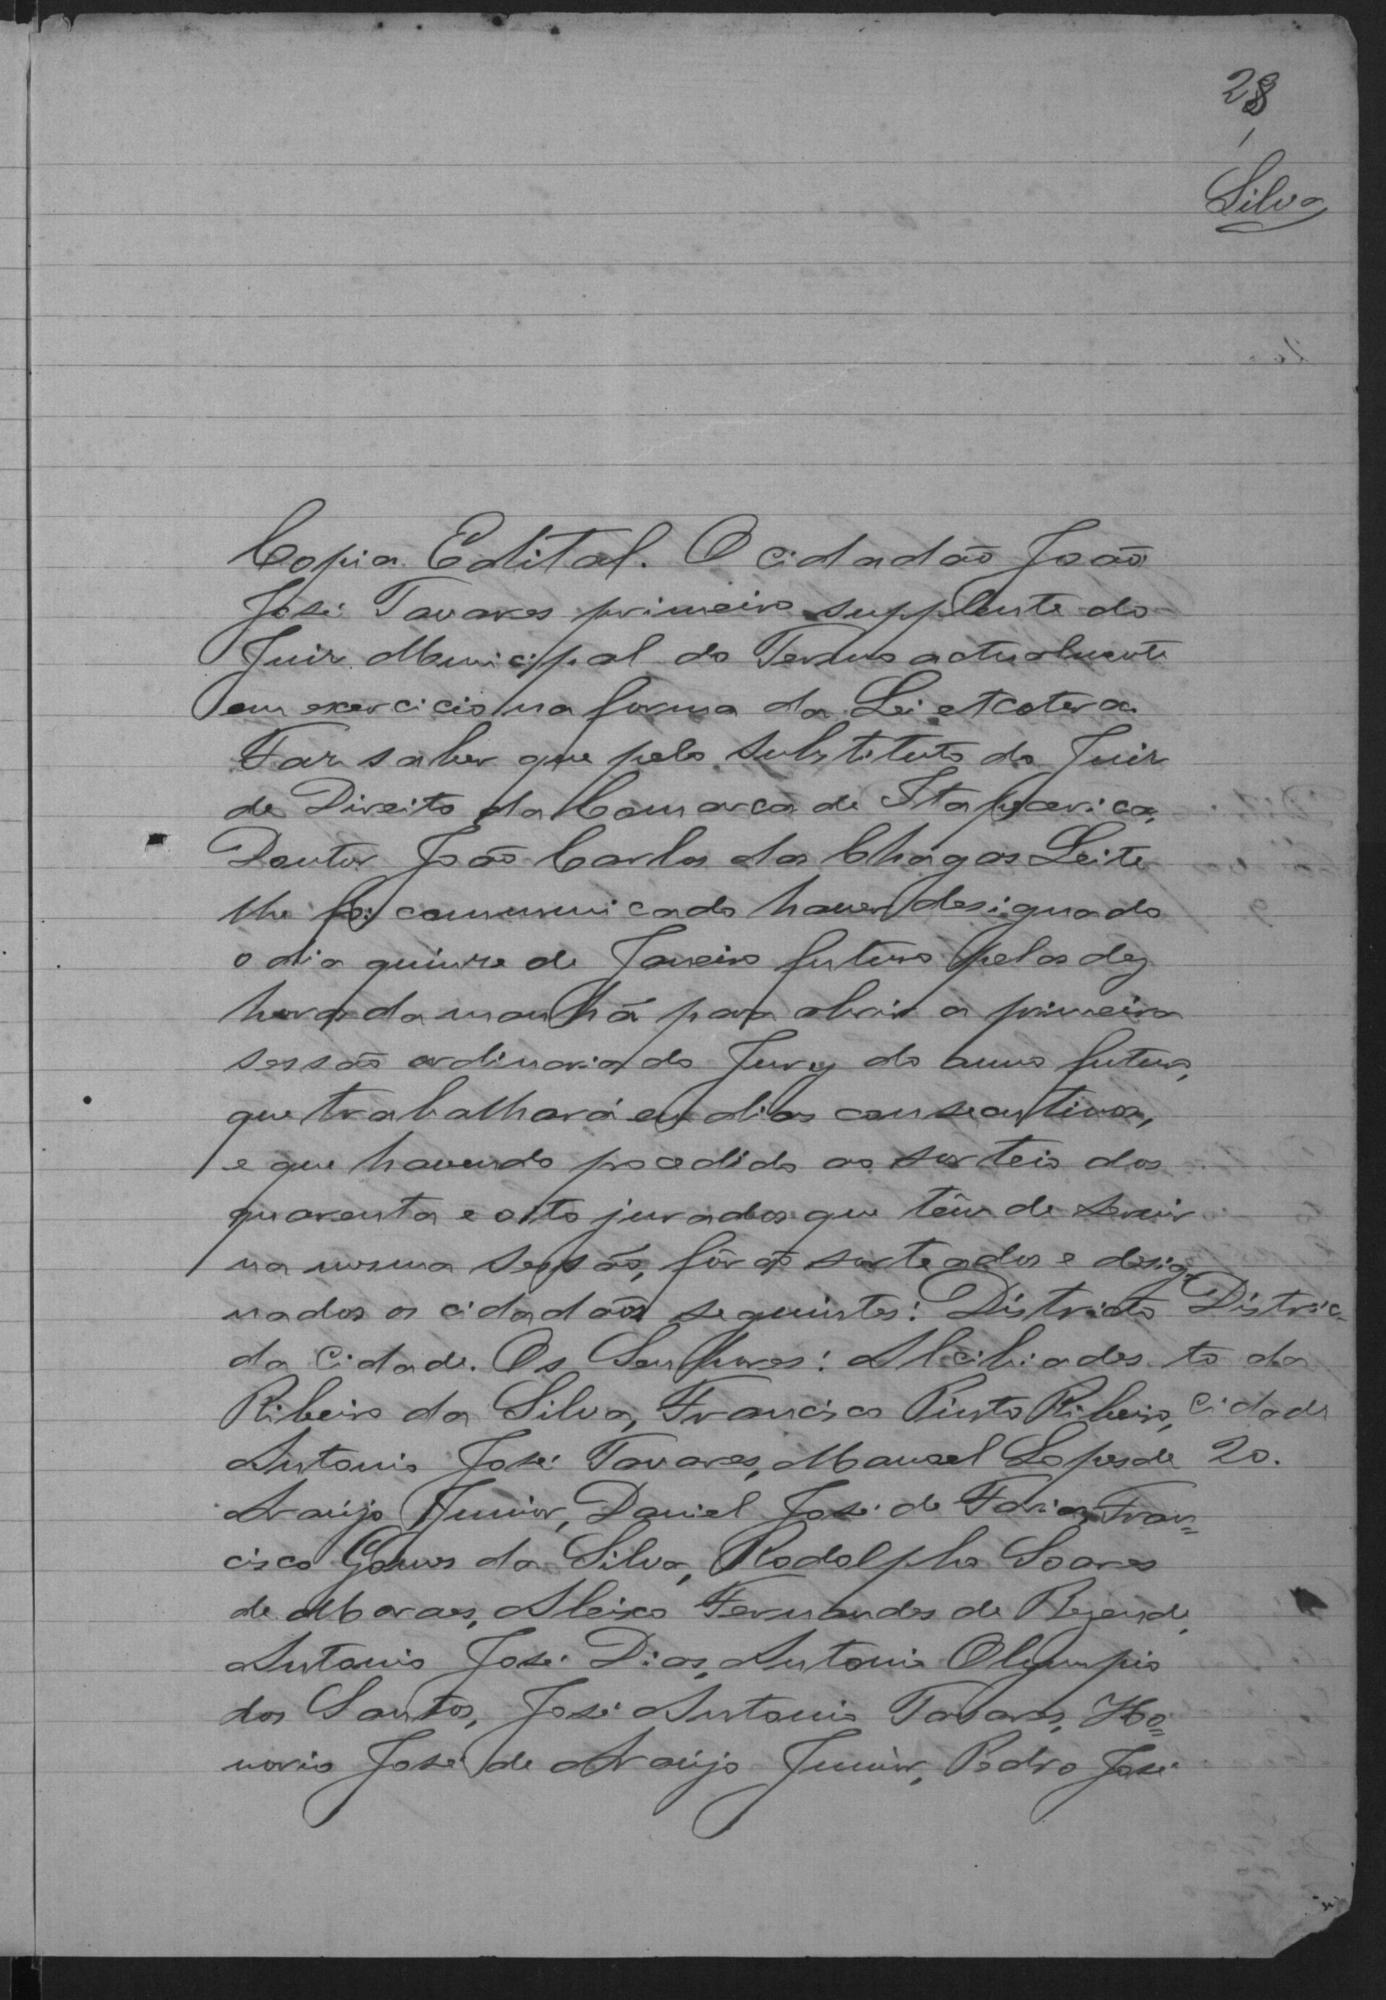 28
Silva
Copia. Edital. O cidadão João
José Tavares primeiro supplente do
Juiz Municipal do Termo actualmente
em exercicio na forma da Lei etcetera
Faz saber que pelo Substituto do Juiz
de Direito da Comarca de Itapecerica,
Doutor João Carlos das Chagas Leite
lhe foi communicado haver designado
o dia quinze de Janeiro futuro pelas dez
horas da manhã para abrir a primeira
sessão ordinaria do Jury do anno futuro,
que trabalhará em dias consecutivos,
e que havendo procedido ao sorteio dos
quarenta e oito jurados que têm de servir
na mesma sessão, fôrão sorteados e desig-
nados os cidadãos seguintes: Districto
da Cidade. Os Senhores: Alcibiades
Ribeiro da Silva, Francisco Pinto Ribeiro,
Antonio José Tavares, Manoel Lopes de
Araújo Junior, Daniel José de Faria, Fran=
cisco Gomes da Silva, Rodolpho Soares
de Moraes, Aleixo Fernandes de Rezende,
Antonio José Dias, Antonio Olympio
dos Santos, José Antonio Tavares, Ho=
norio José de Araújo Junior, Pedro José
Distric-
to da
Cidade
20.